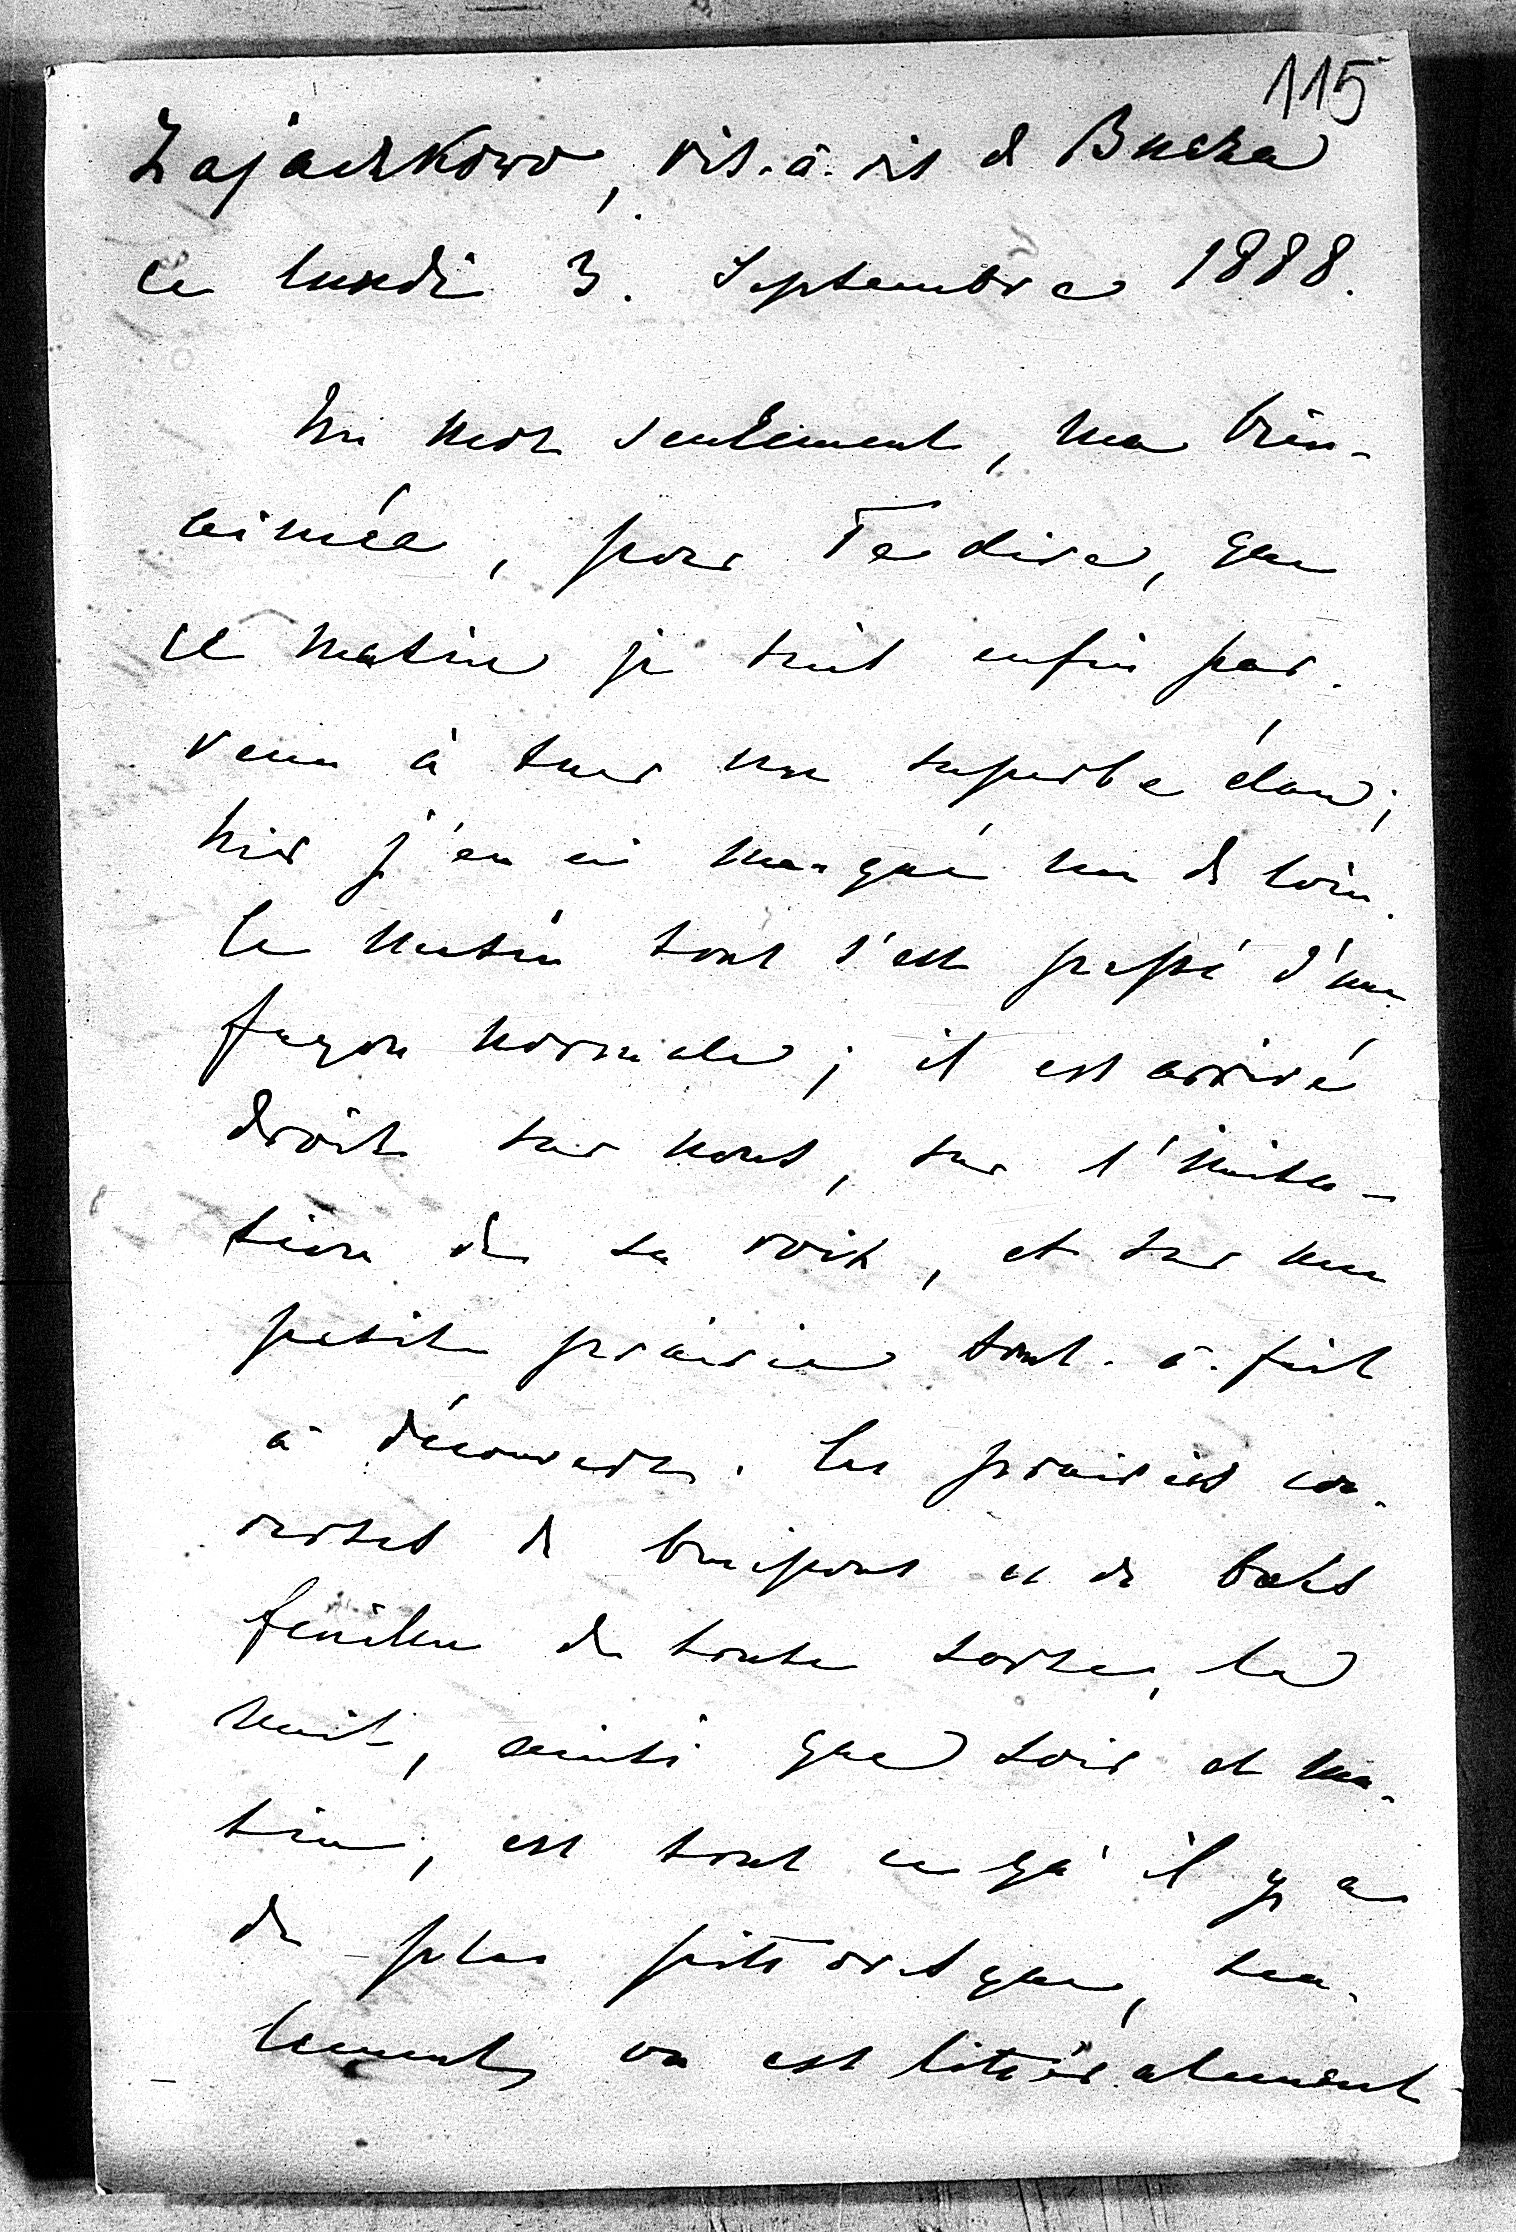 115
Zajaczkowo, vis-à-vis de Bucza
ce lundi 3. Septembre 1888.
Un mot seulement, ma bien-
aimée, pour Te dire, que
ce matin je suis enfin par-
venu à tuer un superbe élan;
hier j'en ai manqué un de loin.
Ce matin tout s'est passé d'une
façon normale; il est arrivé
droit sur nous, sur l'imita-
tion de sa voix, et sur une
petite prairie tout-à-fait
à découvert. Ces prairies cou-
vertes de buissons et de bois
feuillu de toute sorte, la
nuit, ainsi que soir et ma-
tin, est tout ce qu'il y a
de plus pittoresque, seu-
lement, on est littéralement